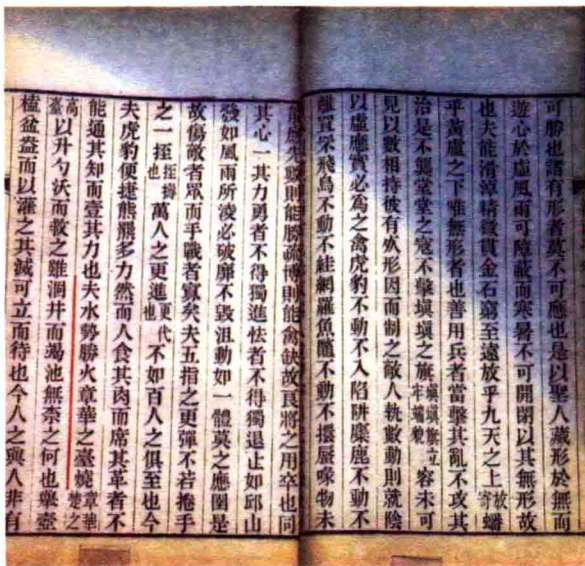 可勝也諸有形者莫不可應也是以聖人藏形於無而
遊心於虛風雨可障蔽而寒暑不可開閉以其無形故
也夫能滑淖精微貫金石窮至遠放乎九天之上放寄蟠
乎黃盧之下唯無形者也善用兵者當擊其亂不攻其
治是不襲堂堂之寇不擊塡塡之旗塡塡旗立牢端貌容未可
見以數相持彼有死形因而制之敵人執數動則就陰
以虛應實必為之禽虎豹不動不入陷阱麋鹿不動不
離罝罘飛鳥不動不絓網羅魚鼈不動不擐脣喙物未
能應先數則能勝疏博則能禽缺故良將之用卒也同
其心一其力勇者不得獨進怯者不得獨退止如邱山
發如風雨所凌必破靡不毀沮動如一體莫之應圉是
故傷敵者眾而手戰者寡矣夫五指之更彈不若捲手
之一挃挃擣也萬人之更進更代也不如百人之俱至也今
夫虎豹便捷熊羆多力然而人食其肉而席其革者不
能通其知而壹其力也夫水勢勝火章華之臺燒章華楚之
高臺以升勺沃而救之雖涸井而竭池無柰之何也舉壺
榼盆盎而以灌之其滅可立而待也今人之與人非有